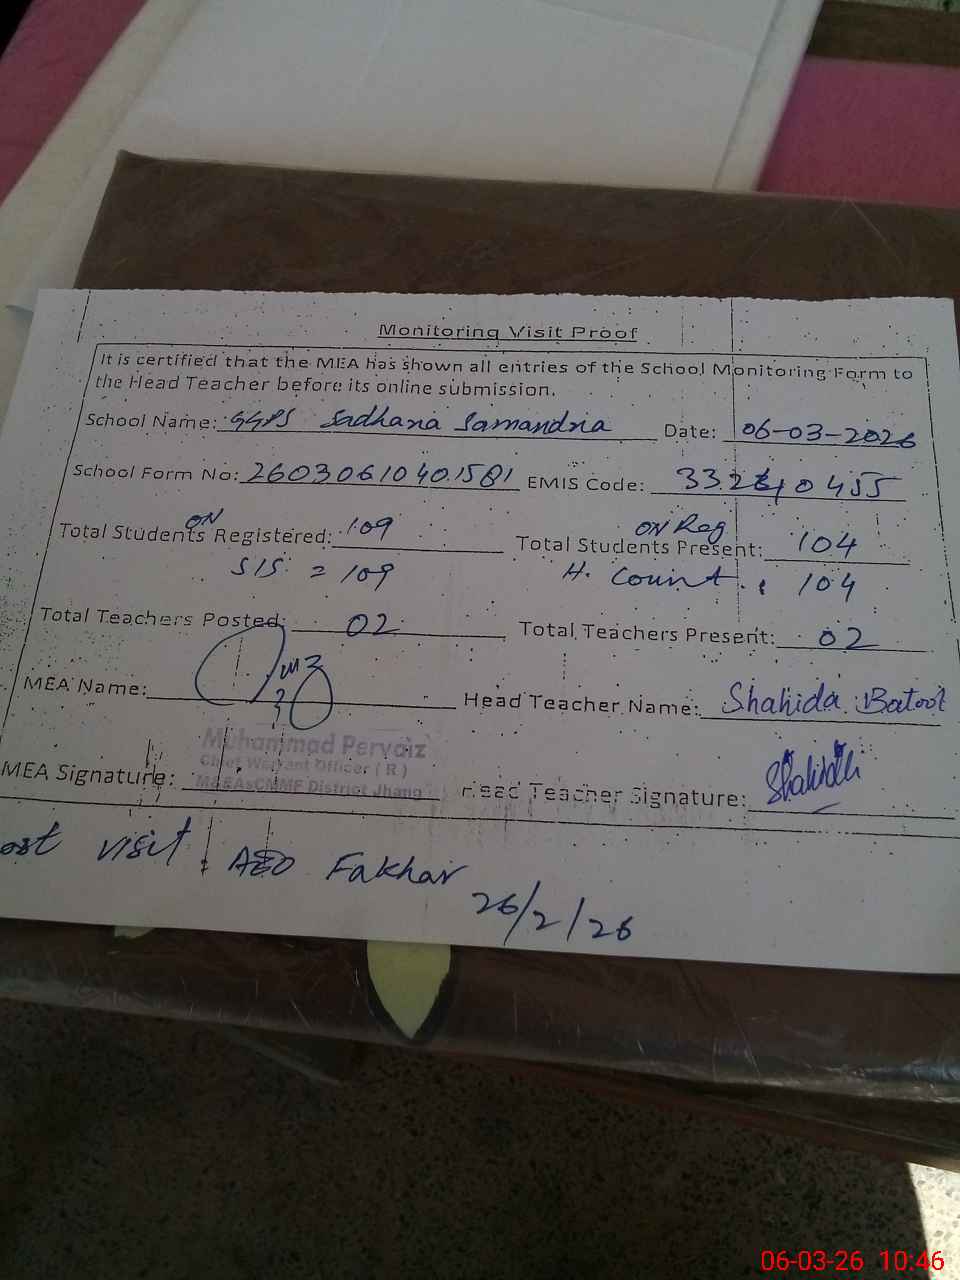 Monitoring Visit Proof
It is certified that the MEA has shown all entries of the School Monitoring Form to
the Head Teacher before its online submission.
School Name: GGPS Sadhana Samandna Date: 06-03-2026
School Form No: 26030610401581 EMIS Code: 33210455
ON ON Reg
Total Students Registered: 109 Total Students Present: 104
SIS = 109 H. Count : 104
Total Teachers Posted: 02 Total Teachers Present: 02
MEA Name: Head Teacher Name: Shahida Batool
Muhammad Pervaiz
Chief Warrant Officer (R)
MEA Signature: M&EAsCMMF District Jhang Head Teacher Signature: Shahida
ost visit AEO Fakhar 26/2/26
06-03-26 10:46